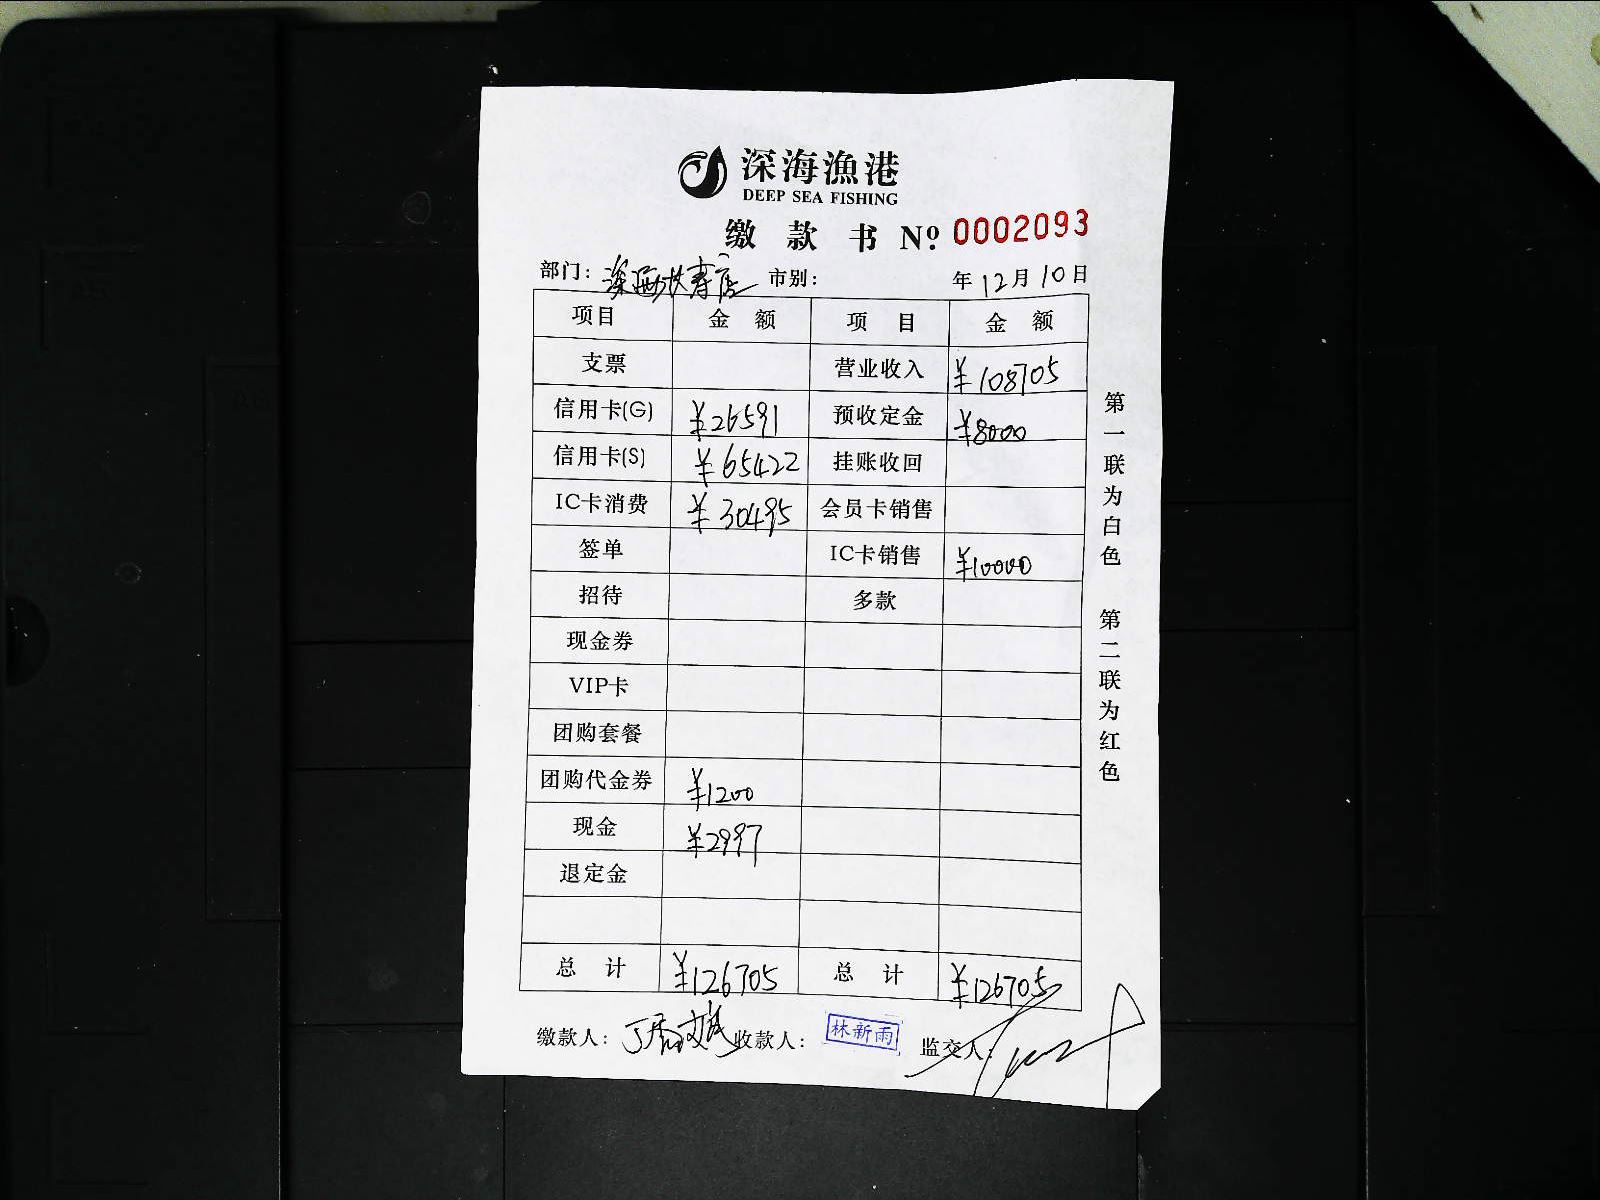 深海渔港
DEEP SEA FISHING
缴款书 Nº 0002093
部门: 市别: 年12月10日
项目 金额 项目 金额
支票 营业收入 ¥108705
信用卡(G) ¥26591 预收定金 ¥8000
信用卡(S) ¥65422 挂账收回
IC卡消费 ¥30495 会员卡销售
签单 IC卡销售 ¥10000
招待 多款
现金券
VIP卡
团购套餐
团购代金券 ¥1200
现金 ¥2997
退定金
总计 ¥126705 总计 ¥126705
缴款人: 收款人: 林新雨 监交人:
第一联为白色 第二联为红色